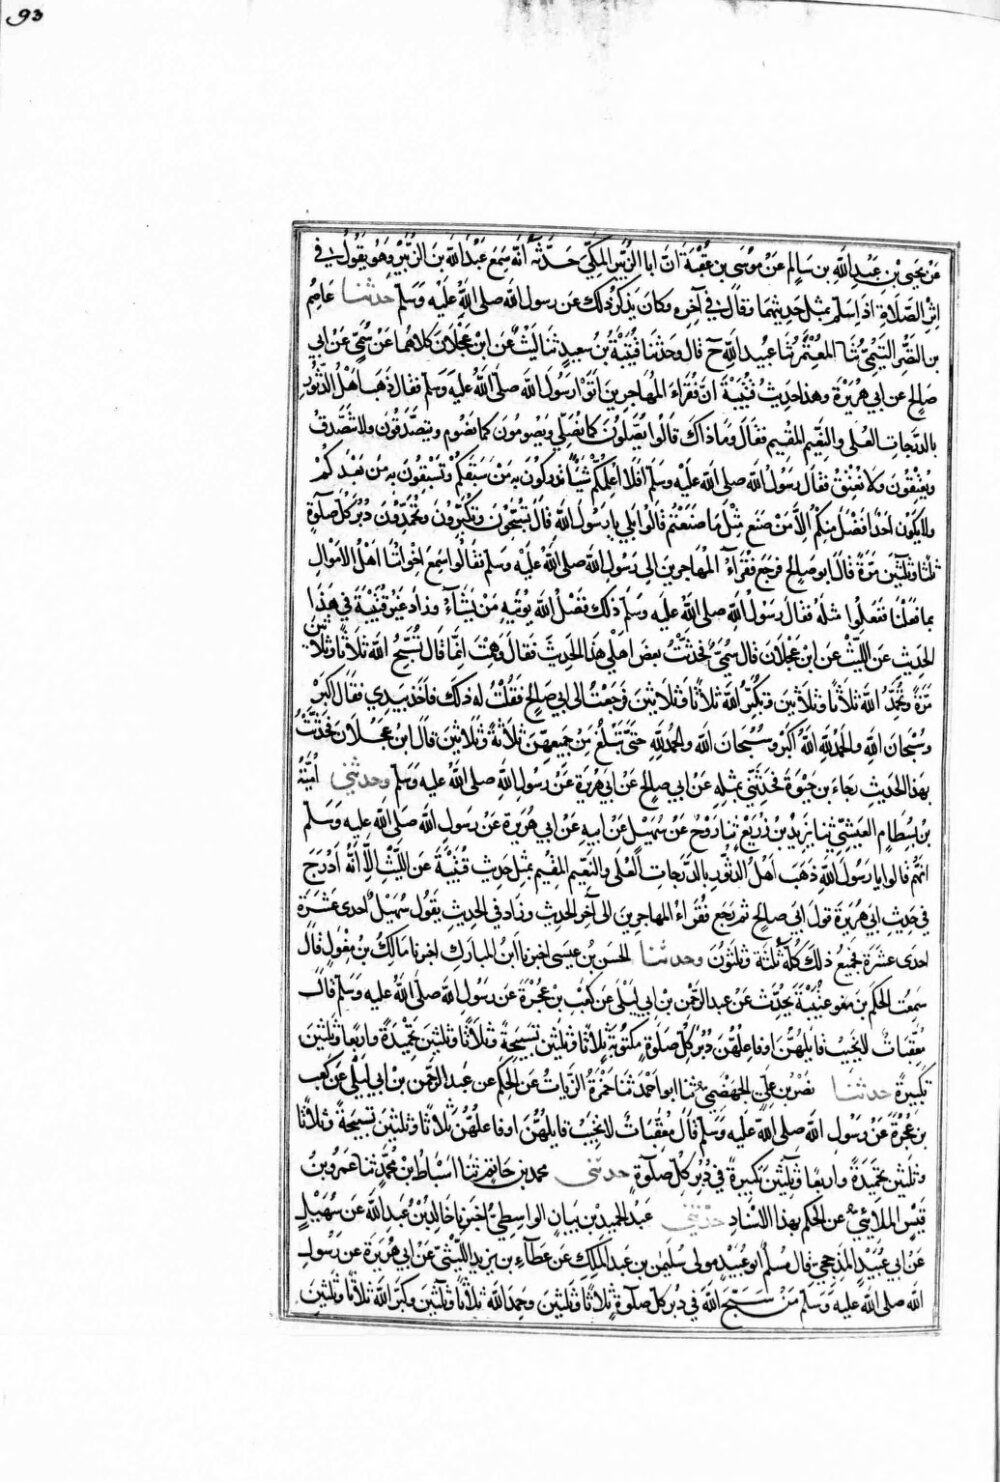 93
عَنْ يَحْيَى بْنِ عَبْدِ اللَّهِ بْنِ سَالِمٍ عَنْ مُوسَى بْنِ عُقْبَةَ اَنَّ اَبَا الزُّبَيْرِ الْمَكِّيَّ حَدَّثَهُ اَنَّهُ سَمِعَ عَبْدَ اللَّهِ بْنَ الزُّبَيْرِ وَهُوَ يَقُولُ فِي
اِثْرِ الصَّلَاةِ اِذَا سَلَّمَ بِمِثْلِ حَدِيثِهِمَا وَقَالَ فِي آخِرِهِ وَكَانَ يَذْكُرُ ذٰلِكَ عَنْ رَسُولِ اللَّهِ صَلَّى اللَّهُ عَلَيْهِ وَسَلَّمَ حدثنا عَاصِمُ
بْنُ النَّضْرِ التَّيْمِيُّ ثَنَا الْمُعْتَمِرُ ثَنَا عُبَيْدُ اللَّهِ ح قَالَ وَحَدَّثَنَا قُتَيْبَةُ بْنُ سَعِيدٍ ثَنَا لَيْثٌ عَنِ ابْنِ عَجْلَانَ كِلَاهُمَا عَنْ سُمَيٍّ عَنْ اَبِي
صَالِحٍ عَنْ اَبِي هُرَيْرَةَ وَهٰذَا حَدِيثُ قُتَيْبَةَ اَنَّ فُقَرَاءَ الْمُهَاجِرِينَ اَتَوْا رَسُولَ اللَّهِ صَلَّى اللَّهُ عَلَيْهِ وَسَلَّمَ فَقَالَ ذَهَبَ اَهْلُ الدُّثُورِ
بِالدَّرَجَاتِ الْعُلٰى وَالنَّعِيمِ الْمُقِيمِ فَقَالَ وَمَا ذَاكَ قَالُوا يُصَلُّونَ كَمَا نُصَلِّي وَيَصُومُونَ كَمَا نَصُومُ وَيَتَصَدَّقُونَ وَلَا نَتَصَدَّقُ
وَيُعْتِقُونَ وَلَا نُعْتِقُ فَقَالَ رَسُولُ اللَّهِ صَلَّى اللَّهُ عَلَيْهِ وَسَلَّمَ اَفَلَا اُعَلِّمُكُمْ شَيْئًا تُدْرِكُونَ بِهِ مَنْ سَبَقَكُمْ وَتَسْبِقُونَ بِهِ مَنْ بَعْدَكُمْ
وَلَا يَكُونُ اَحَدٌ اَفْضَلَ مِنْكُمْ اِلَّا مَنْ صَنَعَ مِثْلَ مَا صَنَعْتُمْ قَالُوا بَلٰي يَا رَسُولَ اللَّهِ قَالَ تُسَبِّحُونَ وَتُكَبِّرُونَ وَتُحَمِّدُونَ دُبُرَ كُلِّ صَلٰوةٍ
ثَلٰثًا وَثَلٰثِينَ مَرَّةً قَالَ اَبُو صَالِحٍ فَرَجَعَ فُقَرَاءُ الْمُهَاجِرِينَ اِلَى رَسُولِ اللَّهِ صَلَّى اللَّهُ عَلَيْهِ وَسَلَّمَ فَقَالُوا سَمِعَ اِخْوَانُنَا اَهْلُ الْاَمْوَالِ
بِمَا فَعَلْنَا فَفَعَلُوا مِثْلَهُ فَقَالَ رَسُولُ اللَّهِ صَلَّى اللَّهُ عَلَيْهِ وَسَلَّمَ ذٰلِكَ فَضْلُ اللَّهِ يُؤْتِيهِ مَنْ يَشَآءُ وَزَادَ غَيْرُ قُتَيْبَةَ فِي هٰذَا
الْحَدِيثِ عَنِ اللَّيْثِ عَنِ ابْنِ عَجْلَانَ قَالَ سُمَيٌّ فَحَدَّثْتُ بَعْضَ اَهْلِي هٰذَا الْحَدِيثَ فَقَالَ وَهِمْتَ اِنَّمَا قَالَ تُسَبِّحُ اللَّهَ ثَلَاثًا وَثَلَاثِينَ
مَرَّةً وَتُحَمِّدُ اللَّهَ ثَلَاثًا وَثَلَاثِينَ وَتُكَبِّرُ اللَّهَ ثَلَاثًا وَثَلَاثِينَ فَرَجَعْتُ اِلَى اَبِي صَالِحٍ فَقُلْتُ لَهُ ذٰلِكَ فَاَخَذَ بِيَدِي فَقَالَ اللَّهُ اَكْبَرُ
وَسُبْحَانَ اللَّهِ وَالْحَمْدُ لِلَّهِ اللَّهُ اَكْبَرُ وَسُبْحَانَ اللَّهِ وَالْحَمْدُ لِلَّهِ حَتَّى تَبْلُغَ مِنْ جَمِيعِهِنَّ ثَلَاثَةً وَثَلَاثِينَ قَالَ ابْنُ عَجْلَانَ فَحَدَّثْتُ
بِهٰذَا الْحَدِيثِ رَجَاءَ بْنَ حَيْوَةَ فَحَدَّثَنِي بِمِثْلِهِ عَنْ اَبِي صَالِحٍ عَنْ اَبِي هُرَيْرَةَ عَنْ رَسُولِ اللَّهِ صَلَّى اللَّهُ عَلَيْهِ وَسَلَّمَ وحدثني اُمَيَّةُ
بْنُ بِسْطَامِ الْعَيْشِيُّ ثَنَا يَزِيدُ بْنُ زُرَيْعٍ ثَنَا رَوْحٌ عَنْ سُهَيْلٍ عَنْ اَبِيهِ عَنْ اَبِي هُرَيْرَةَ عَنْ رَسُولِ اللَّهِ صَلَّى اللَّهُ عَلَيْهِ وَسَلَّمَ
اَنَّهُمْ قَالُوا يَا رَسُولَ اللَّهِ ذَهَبَ اَهْلُ الدُّثُورِ بِالدَّرَجَاتِ الْعُلٰى وَالنَّعِيمِ الْمُقِيمِ بِمِثْلِ حَدِيثِ قُتَيْبَةَ عَنِ اللَّيْثِ اِلَّا اَنَّهُ اَدْرَجَ
فِي حَدِيثِ اَبِي هُرَيْرَةَ قَوْلَ اَبِي صَالِحٍ ثُمَّ رَجَعَ فُقَرَاءُ الْمُهَاجِرِينَ اِلَى آخِرِ الْحَدِيثِ وَزَادَ فِي الْحَدِيثِ يَقُولُ سُهَيْلٌ اِحْدٰى عَشْرَةَ
اِحْدٰى عَشْرَةَ فَجَمِيعُ ذٰلِكَ كُلُّهُ ثَلٰثَةٌ وَثَلٰثُونَ وحدثنا الْحَسَنُ بْنُ عِيسٰى اَخْبَرَنَا ابْنُ الْمُبَارَكِ اَخْبَرَنَا مَالِكُ بْنُ مِغْوَلٍ قَالَ
سَمِعْتُ الْحَكَمَ بْنَ عُتَيْبَةَ يُحَدِّثُ عَنْ عَبْدِ الرَّحْمٰنِ بْنِ اَبِي لَيْلٰى عَنْ كَعْبِ بْنِ عُجْرَةَ عَنْ رَسُولِ اللَّهِ صَلَّى اللَّهُ عَلَيْهِ وَسَلَّمَ قَالَ
مُعَقِّبَاتٌ لَا يَخِيبُ قَائِلُهُنَّ اَوْ فَاعِلُهُنَّ دُبُرَ كُلِّ صَلٰوةٍ مَكْتُوبَةٍ ثَلَاثًا وَثَلٰثِينَ تَسْبِيحَةً وَثَلَاثًا وَثَلٰثِينَ تَحْمِيدَةً وَاَرْبَعًا وَثَلٰثِينَ
تَكْبِيرَةً حدثنا نَصْرُ بْنُ عَلِيٍّ الْجَهْضَمِيُّ ثَنَا اَبُو اَحْمَدَ ثَنَا حَمْزَةُ الزَّيَّاتُ عَنِ الْحَكَمِ عَنْ عَبْدِ الرَّحْمٰنِ بْنِ اَبِي لَيْلٰى عَنْ كَعْبِ
بْنِ عُجْرَةَ عَنْ رَسُولِ اللَّهِ صَلَّى اللَّهُ عَلَيْهِ وَسَلَّمَ قَالَ مُعَقِّبَاتٌ لَا يَخِيبُ قَائِلُهُنَّ اَوْ فَاعِلُهُنَّ ثَلَاثًا وَثَلٰثِينَ تَسْبِيحَةً وَثَلَاثًا
وَثَلٰثِينَ تَحْمِيدَةً وَاَرْبَعًا وَثَلٰثِينَ تَكْبِيرَةً فِي دُبُرِ كُلِّ صَلٰوةٍ حدثني مُحَمَّدُ بْنُ حَاتِمٍ ثَنَا اَسْبَاطُ بْنُ مُحَمَّدٍ ثَنَا عَمْرُو بْنُ
قَيْسٍ الْمُلَائِيُّ عَنِ الْحَكَمِ بِهٰذَا الْاِسْنَادِ حدثني عَبْدُ الْحَمِيدِ بْنُ بَيَانٍ الْوَاسِطِيُّ اَخْبَرَنَا خَالِدُ بْنُ عَبْدِ اللَّهِ عَنْ سُهَيْلٍ
عَنْ اَبِي عُبَيْدٍ الْمَذْحِجِيِّ قَالَ مُسْلِمٌ اَبُو عُبَيْدٍ مَوْلَى سُلَيْمٰنَ بْنِ عَبْدِ الْمَلِكِ عَنْ عَطَآءِ بْنِ يَزِيدَ اللَّيْثِيِّ عَنْ اَبِي هُرَيْرَةَ عَنْ رَسُولِ
اللَّهِ صَلَّى اللَّهُ عَلَيْهِ وَسَلَّمَ مَنْ سَبَّحَ اللَّهَ فِي دُبُرِ كُلِّ صَلٰوةٍ ثَلَاثًا وَثَلٰثِينَ وَحَمِدَ اللَّهَ ثَلَاثًا وَثَلٰثِينَ وَكَبَّرَ اللَّهَ ثَلَاثًا وَثَلٰثِينَ